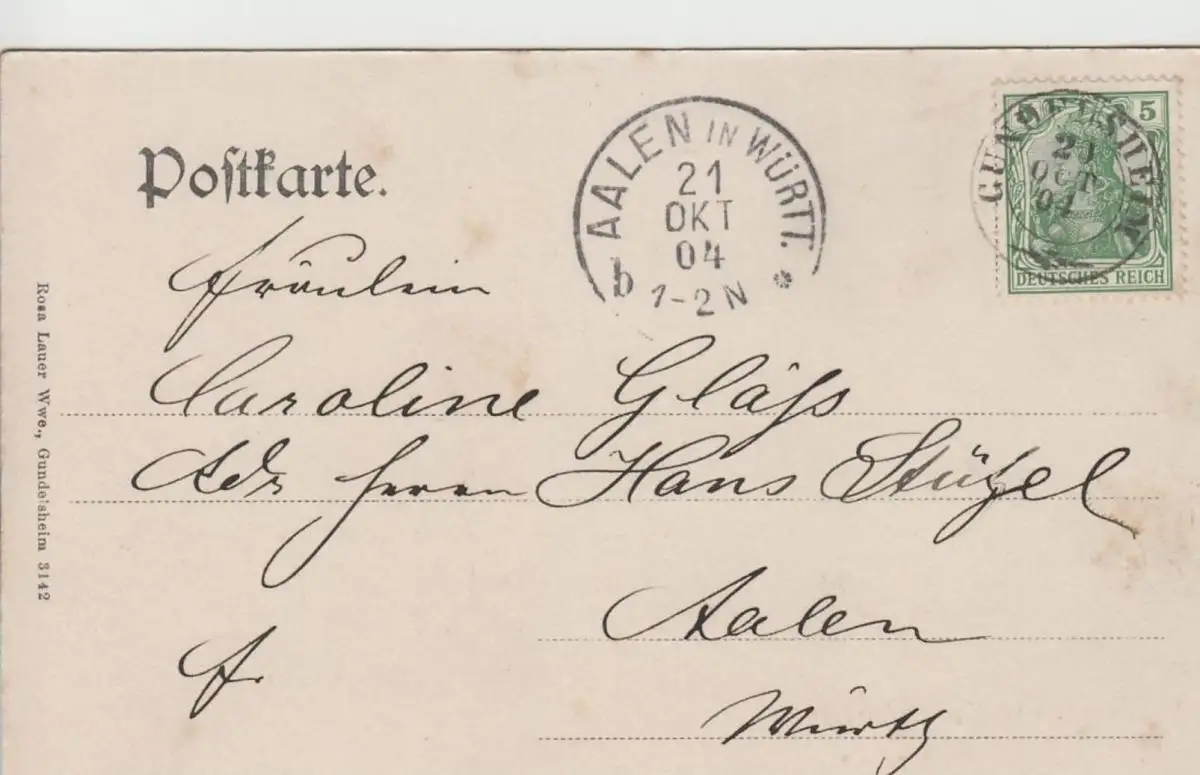 Postkarte.
AALEN IN WÜRTT.
21
OKT
04
b 1-2 N *
GUNDELSHEIM
20
OCT
04
5
DEUTSCHES REICH
Fräulein
Caroline Gläß
Adr Herrn Hans Stützel
Aalen
fr.
Württ
Rosa Lauer Wwe., Gundelsheim 3142